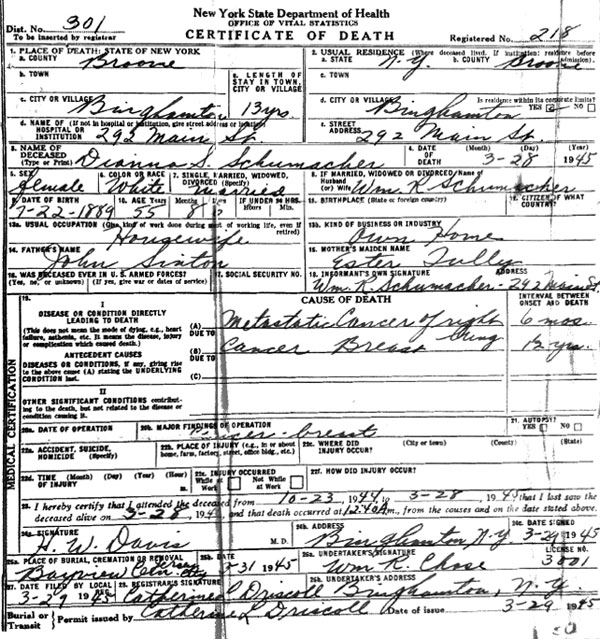 New York State Department of Health
OFFICE OF VITAL STATISTICS
Dist. No. 301
To be inserted by registrar
CERTIFICATE OF DEATH
Registered No. 218
1. PLACE OF DEATH: STATE OF NEW YORK
a. COUNTY Broome
2. USUAL RESIDENCE (Where deceased lived. If institution: residence before admission).
a. STATE N.Y. b. COUNTY Broome
b. TOWN
e. LENGTH OF STAY IN TOWN, CITY OR VILLAGE 13 yrs.
c. TOWN
c. CITY OR VILLAGE Binghamton
d. CITY OR VILLAGE Binghamton
Is residence within its corporate limits? YES NO
d. NAME OF (If not in hospital or institution, give street address or location)
HOSPITAL OR INSTITUTION 292 Main St.
e. STREET ADDRESS 292 Main St.
3. NAME OF DECEASED (Type or Print) Dianna S. Schumacher
4. DATE OF DEATH (Month) (Day) (Year) 3-28 1945
5. SEX female
6. COLOR OR RACE White
7. SINGLE, MARRIED, WIDOWED, DIVORCED (Specify) Married
8. IF MARRIED, WIDOWED OR DIVORCED/Name of Husband (or) Wife Wm. K. Schumacher
9. DATE OF BIRTH 7-22-1889
10. AGE Years 55 Months 8 IF UNDER 24 HRS. Hours Min.
11. BIRTHPLACE (State or foreign country)
12. CITIZEN OF WHAT COUNTRY?
13a. USUAL OCCUPATION (Give kind of work done during most of working life, even if retired) Housewife
13b. KIND OF BUSINESS OR INDUSTRY Own Home
14. FATHER'S NAME John Sinton
15. MOTHER'S MAIDEN NAME Ester Tully
16. WAS DECEASED EVER IN U. S. ARMED FORCES?
(Yes, no, or unknown) (If yes, give war or dates of service)
17. SOCIAL SECURITY NO.
18. INFORMANT'S OWN SIGNATURE ADDRESS
Wm. K. Schumacher - 292 Main St.
MEDICAL CERTIFICATION
19. CAUSE OF DEATH
INTERVAL BETWEEN ONSET AND DEATH
I
DISEASE OR CONDITION DIRECTLY LEADING TO DEATH
(This does not mean the mode of dying, e.g., heart failure, asthenia, etc. It means the disease, injury or complication which caused death.)
(A) Metastatic Cancer of right lung 6 mos.
DUE TO
ANTECEDENT CAUSES
DISEASES OR CONDITIONS, if any, giving rise to the above cause (A) stating the UNDERLYING CONDITION last.
(B) Cancer Breast 12 yrs.
DUE TO
(C)
II
OTHER SIGNIFICANT CONDITIONS contributing to the death, but not related to the disease or condition causing it.
20a. DATE OF OPERATION
20b. MAJOR FINDINGS OF OPERATION Cancer-breast
21. AUTOPSY? YES NO
22a. ACCIDENT, SUICIDE, HOMICIDE (Specify)
22b. PLACE OF INJURY (e.g., in or about home, farm, factory, street, office bldg., etc.)
22c. WHERE DID INJURY OCCUR? (City or town) (County) (State)
22d. TIME OF INJURY (Month) (Day) (Year) (Hour) m.
22e. INJURY OCCURRED While at Work Not While at Work
22f. HOW DID INJURY OCCUR?
23. I hereby certify that I attended the deceased from 10-23, 1944 to 3-28, 1944 that I last saw the
deceased alive on 3-28, 194 and that death occurred at 12:40 A m., from the causes and on the date stated above.
24a. SIGNATURE H. W. Davis M.D.
24b. ADDRESS Binghamton N.Y.
24c. DATE SIGNED 3-29 1945
25a. PLACE OF BURIAL, CREMATION OR REMOVAL Bayview Cem. Jersey City
25b. DATE 3-31 1945
26a. UNDERTAKER'S SIGNATURE Wm R. Chase
LICENSE NO. 3001
27. DATE FILED BY LOCAL 3-29 1945
28. REGISTRAR'S SIGNATURE Catherine L Driscoll
26b. UNDERTAKER'S ADDRESS Binghamton, N.Y.
Burial or Transit Permit issued by Catherine L Driscoll Date of issue 3-29 1945